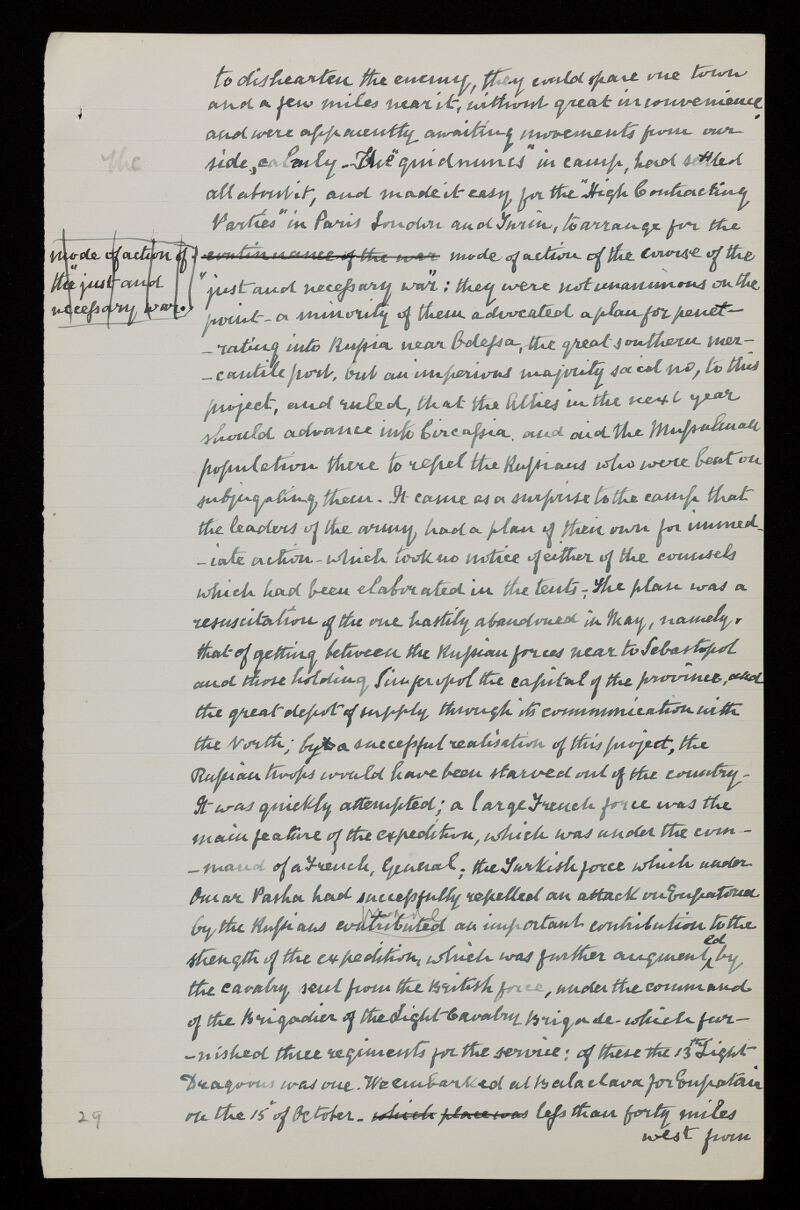 to dishearten the enemy, they could spare one town
and a few miles near it, without great inconvenience,
and were apparently awaiting movements from our
The
side, calmly - The "quidnuncs" in camp, had settled
all about it, and made it easy for the "High Contracting
Parties" in Paris London and Turin, to arrange for the
mode of action of
the "just and
necessary war.
continuance of the war mode of action of the course of the
"just and necessary war": they were not unanimous on the
point - a minority of them advocated a plan for penet-
-rating into Russia near Odessa, the great southern mer-
-cantile port, but an imperious majority said no, to this
project, and ruled, that the Allies in the next year
should advance into Circassia. and aid the Mussulman
population there to repel the Russians who were bent on
subjugating them - It came as a surprise to the camp that
the leaders of the army, had a plan of their own for immed-
-iate action - which took no notice of either of the counsels
which had been elaborated in the tents; The plan was a
resuscitation of the one hastily abandoned in May, namely.
that of getting between the Russian forces near to Sebastopol
and those holding Simferopol the capital of the province, and
the great depot of supply through its communication with
the North; by a successful realisation of this project, the
Russian troops would have been starved out of the country -
It was quickly attempted; a large French force was the
main feature of the expedition, which was under the com-
-mand of a French, General; the Turkish force which under
Omar Pasha had successfully repelled an attack on Eupatoria
by the Russians contributed an important contribution to the
strength of the expedition, which was further augmented by
the cavalry sent from the British force, under the command
of the Brigadier of the Light Cavalry Brigade - which fur-
-nished three regiments for the service: of these the 13th Light
Dragoons was one. We embarked at Balaclava for Eupatoria
on the 15th of October - which place was less than forty miles
west from
29